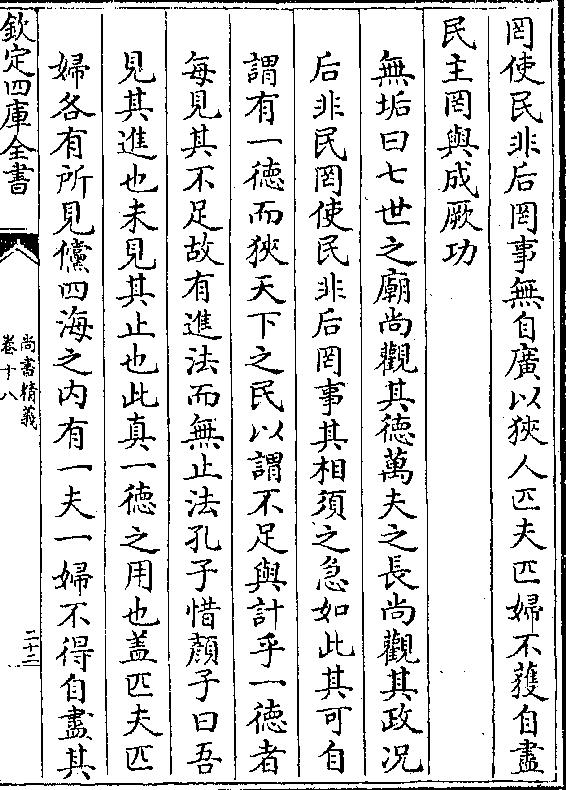 罔使民非后罔事無自廣以狹人匹夫匹婦不獲自盡
民主罔與成厥功
無垢曰七世之廟尚觀其德萬夫之長尚觀其政况
后非民罔使民非后罔事其相須之急如此其可自
謂有一徳而狹天下之民以謂不足與計乎一徳者
每見其不足故有進法而無止法孔子惜顔子曰吾
見其進也未見其止也此真一徳之用也盖匹夫匹
婦各有所見儻四海之内有一夫一婦不得自盡其
欽定四庫全書
尚書精義
卷十八
二十二